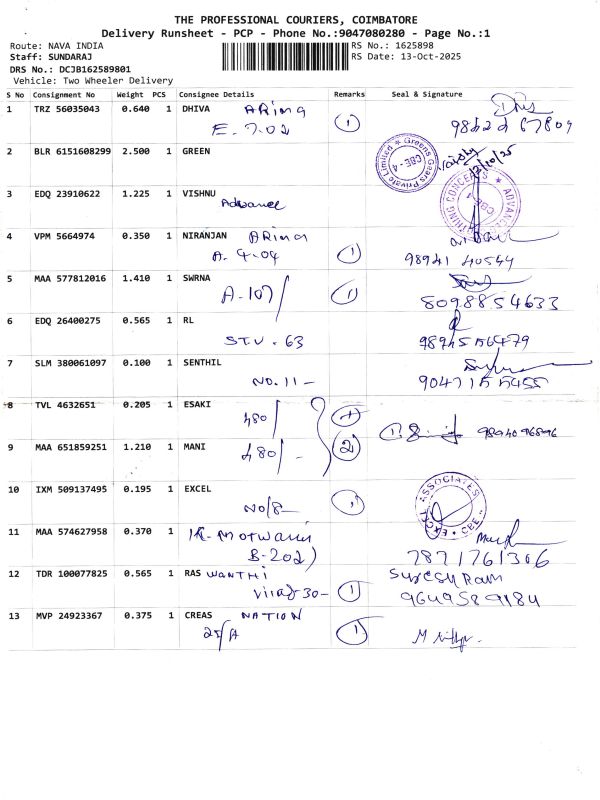 THE PROFESSIONAL COURIERS, COIMBATORE
Delivery Runsheet - PCP - Phone No.:9047080280 - Page No.:1
Route: NAVA INDIA RS No.: 1625898
Staff: SUNDARAJ RS Date: 13-Oct-2025
DRS No.: DCJB162589801
Vehicle: Two Wheeler Delivery
S No Consignment No Weight PCS Consignee Details Remarks Seal & Signature
1 TRZ 56035043 0.640 1 DHIVA
E. 702 1
2 BLR 6151608299 2.500 1 GREEN Greens Gears Private Limited CBE - 4
3 EDQ 23910622 1.225 1 VISHNU
4 VPM 5664974 0.350 1 NIRANJAN
A. 9-04 1 98941 40544
5 MAA 577812016 1.410 1 SWRNA
A-107/ 1 8098854633
6 EDQ 26400275 0.565 1 RL
STV. 63
7 SLM 380061097 0.100 1 SENTHIL
NO. 11 -
8 TVL 4632651 0.205 1 ESAKI
480/
9 MAA 651859251 1.210 1 MANI
480/- 2
10 IXM 509137495 0.195 1 EXCEL EXCEL ASSOCIATES CBE
NO/8-
11 MAA 574627958 0.370 1
B-202) 7871761306
12 TDR 100077825 0.565 1 RAS WANTHI SURESH RAM
30- 1 9649589184
13 MVP 24923367 0.375 1 CREAS NATION
25/A 1